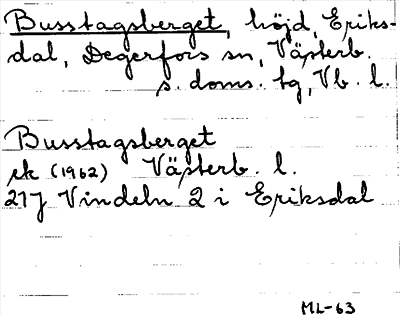 Busstagsberget, höjd, Eriks-
dal, Degerfors sn, Västerb.
s. doms. tg, Vb. l.
Busstagsberget
ek (1962) Västerb. l.
21J Vindeln 2 i Eriksdal
ML-63